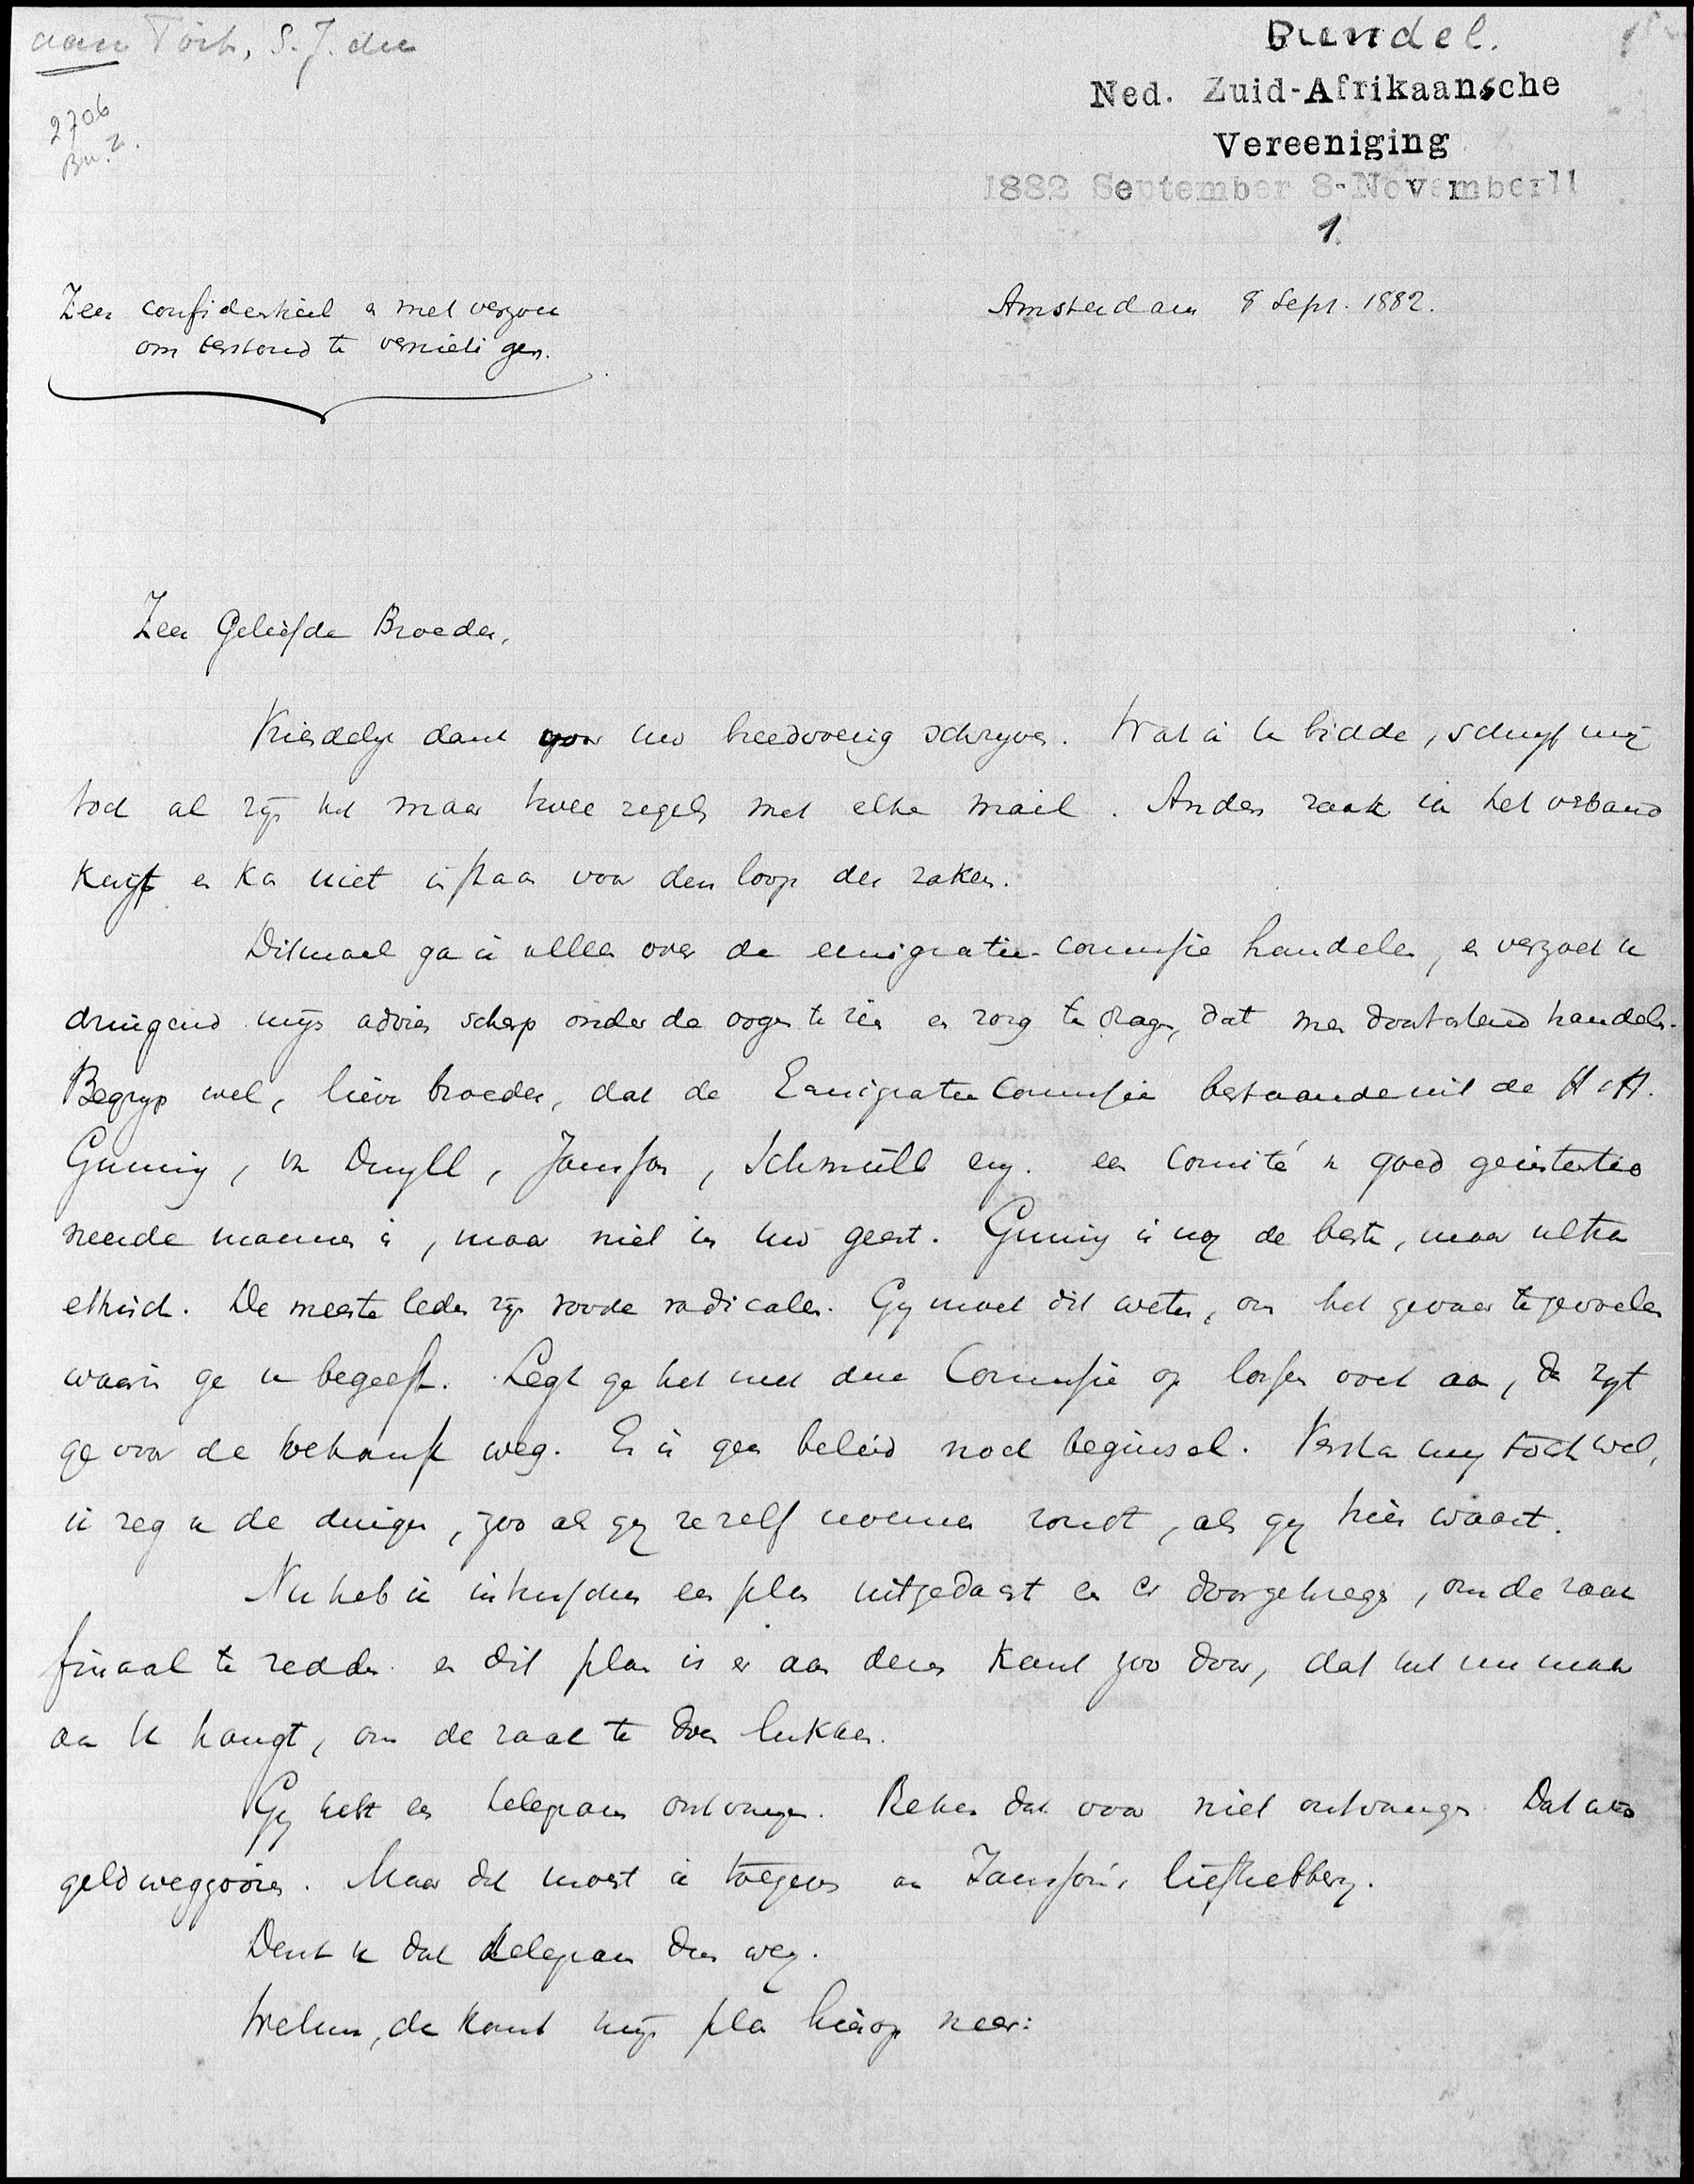 aan Toit, S. J. du
2706
Bu. 2.
Bundel.
Ned. Zuid-Afrikaansche
Vereeniging
1882 September 8-November 11
1.
Zeer confidentieel en met verzoek
om terstond te vernietigen.
Amsterdam 8 Sept. 1882.
Zeer Geliefde Broeder,
Vriendelijk dank voor uw breedvoerig schrijven. Wat ik u bidde, schrijf mij
toch al zij het maar twee regels met elke mail. Anders raak ik het verband
kwijt en kan niet instaan voor den loop der zaken.
Ditmaal ga ik alleen over de emigratie-commissie handelen, en verzoek u
dringend mijn advies scherp onder de oogen te zien en zorg te dragen, dat men doortastend handele.
Begryp wel, lieve broeder, dat de Emigratie Commissie bestaande uit de H.H.
Gunning, v. Duyll, Jamson, Schmüll enz. een comité v. goed geintentio
neerde mannen is, maar niet in uw geest. Gunning is nog de beste, maar ultra
ethisch. De meeste leden zijn roode radicalen. Gij moet dit weten, om het gevaar te gevoelen
waarin ge u begeeft. Legt ge het met deze Commissie op lossen voet aan, dan zijt
ge voor de toekomst weg. Er is geen beleid noch beginsel. Versta mij toch wel,
ik zeg u de dingen, zoo als gij ze zelf noemen zoudt, als gij hier waart.
Nu heb ik intusschen een plan uitgedacht en er doorgekregen, om de zaak
finaal te redden en dit plan is er aan dezen kant zoo door, dat het nu maar
aan U hangt, om de zaak te doen lukken.
Gij hebt een telegram ontvangen. Reken dat voor niet ontvangen. Dat was
geld weggooien. Maar dat moest ik toegeven aan Jamson's liefhebberij.
Denk u dat telegram dus weg.
Welnu, dan komt mijn plan hierop neer: